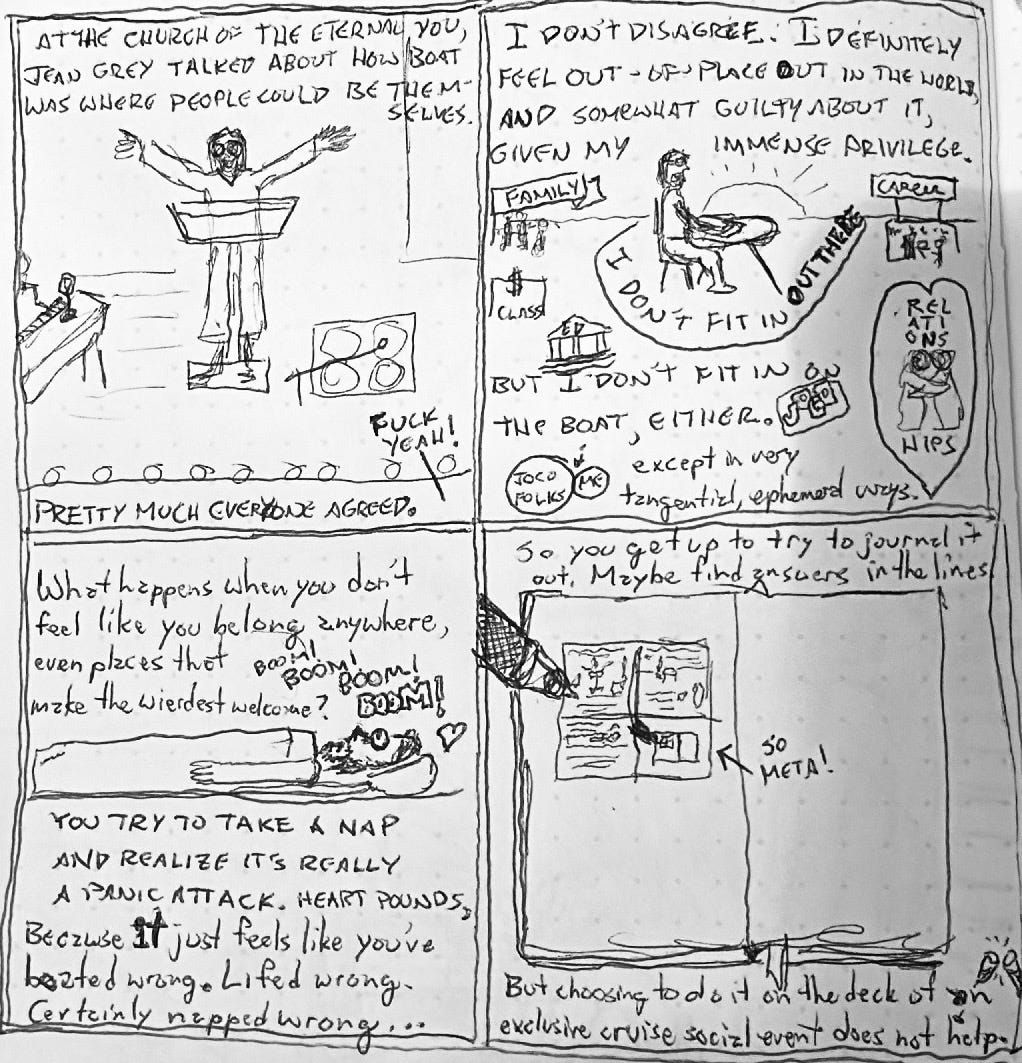 AT THE CHURCH OF THE ETERNAL YOU,
JEAN GREY TALKED ABOUT HOW BOAT
WAS WHERE PEOPLE COULD BE THEM-
SELVES.
FUCK
YEAH!
PRETTY MUCH EVERYONE AGREED.
I DON'T DISAGREE. I DEFINITELY
FEEL OUT-OF-PLACE OUT IN THE WORLD,
AND SOMEWHAT GUILTY ABOUT IT,
GIVEN MY IMMENSE PRIVILEGE.
FAMILY
CAREER
I DON'T FIT IN OUT THERE
$
CLASS
ED
REL
ATI
ONS
HIPS
BUT I DON'T FIT IN ON
THE BOAT, EITHER.
JOCO
FOLKS
ME
except in very
tangential, ephemeral ways.
What happens when you don't
feel like you belong anywhere,
even places that
make the wierdest welcome?
BOOM!
BOOM!
BOOM!
BOOM!
YOU TRY TO TAKE A NAP
AND REALIZE IT'S REALLY
A PANIC ATTACK. HEART POUNDS,
Because it just feels like you've
boated wrong. Lifed wrong.
Certainly napped wrong...
So you get up to try to journal it
out. Maybe find answers in the lines
SO
META!
But choosing to do it on the deck of an
exclusive cruise social event does not help.